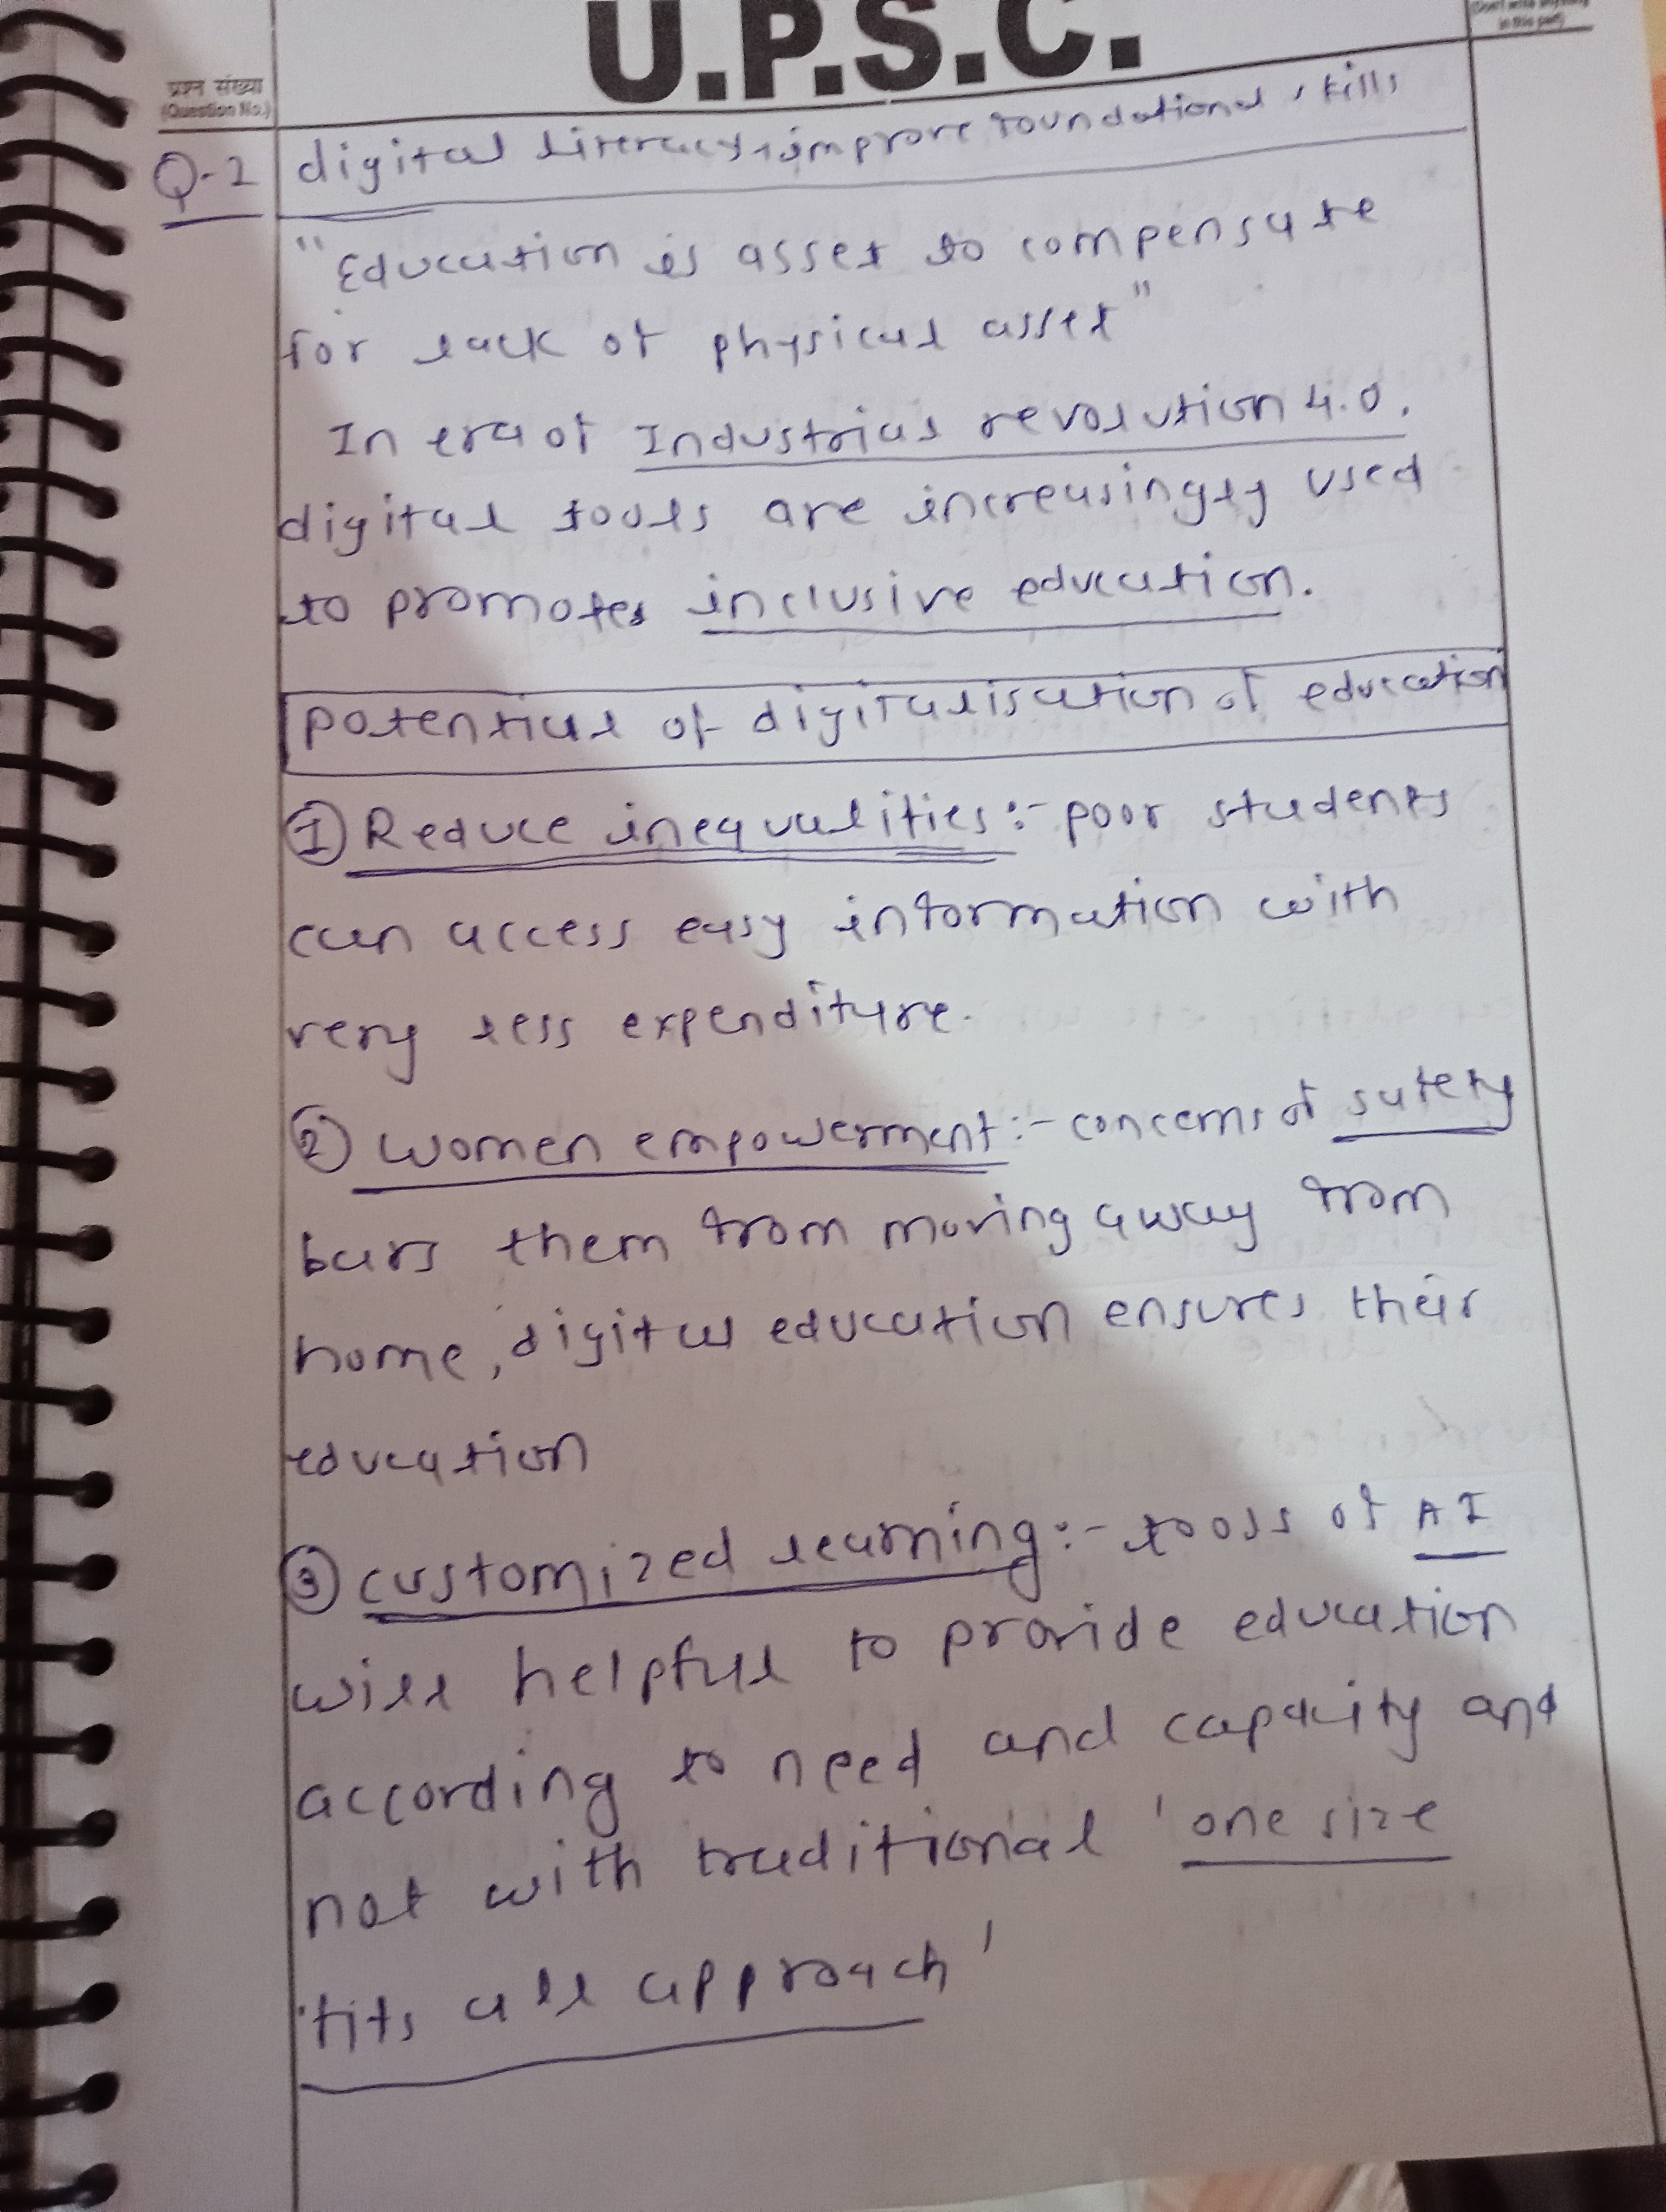 U.P.S.C.
(Don't write anything
in this part)
प्रश्न संख्या
(Question No.)
Q-2 digital literacy, improve foundational skills
"Education is asset to compensate
for lack of physical asset"
In era of Industrial revolution 4.0,
digital tools are increasingly used
to promotes inclusive education.
potential of digitalisation of education
① Reduce inequalities :- poor students
can access easy information with
very less expenditure.
② women empowerment :- concerns of safety
bars them from moving away from
home, digital education ensures their
education
③ customized learning :- tools of AI
will helpful to provide education
according to need and capacity and
not with traditional 'one size
fits all approach'